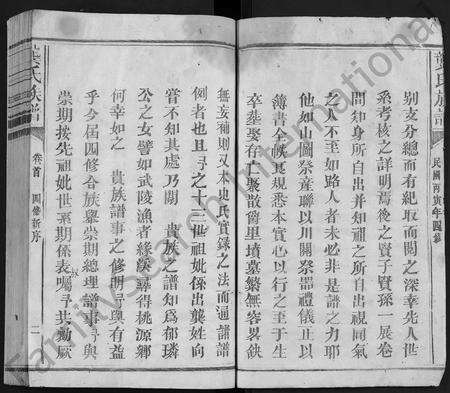 龔氏族譜
民國丙寅年四修
別支分總而有紀取而閱之深幸先人世
系考核之詳明焉後之賢子賢孫一展卷
間知身所自出并知祖之所自出視同氣
之人不至如路人者未必非是譜之力耶
他如山圖祭產聯以川關祭器禮儀止以
簿書全帙其規悉本實心以行之至于生
卒葬娶存亡聚散爵里墳墓繁無容畧缺
無妄補則又本史氏實錄之法而通譜譜
例者也且尋之十三世祖妣係出龔姓向
嘗不知其處乃閱 貴族之譜知為郁璘
公之女譬如武陵漁者緣溪尋得桃源鄉
何幸如之 貴族譜事之修明尋與有益
乎今屆四修合族舉崇期總理譜事尋與
崇期按先祖妣世系期係表叔囑尋共勷厥
龔氏族譜
卷首
四修新序
二
FamilySearch International